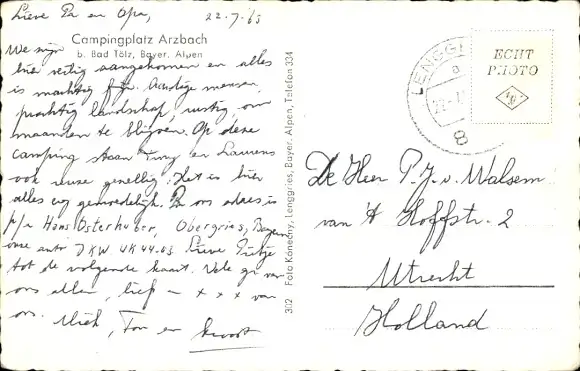 Lieve Pa en Opa, 22-7-63
Campingplatz Arzbach
b. Bad Tölz, Bayer. Alpen
We zijn
hier veilig aangekomen en alles
is machtig fijn. Aardige mensen,
prachtig landschap, rustig om
maanden te blijven. Op deze
camping staan Tiny en Laurens
ook reuze gezellig. Het is hier
alles erg gemoedelijk. Ons adres is
p/a Hans Osterhuber, Obergries, Bayern
onze auto DKW UK 44-03 Lieve
tot de volgende kaart. Vele gr van
ons allen, liefs — x x x van
Miek, Ton en kroost
302 Foto Konecny, Lenggries, Bayer. Alpen, Telefon 334
LENGGRI
a
8
ECHT
PHOTO
De Heer P.J. v. Walsem
van 't Hoffstr. 2
Utrecht
Holland